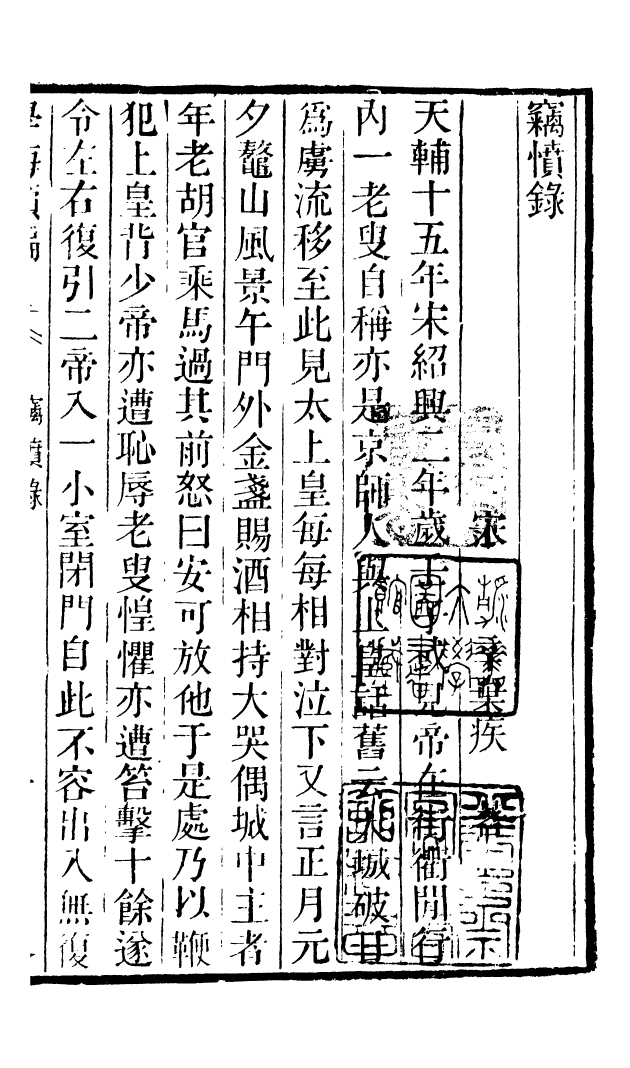 竊憤錄
宋 棄疾
天輔十五年宋紹興二年歲壬子 帝在街衢閒行
內一老叟自稱亦是京師人與上皇話舊云 城破日
爲虜流移至此見太上皇每每相對泣下又言正月元
夕鼇山風景午門外金盞賜酒相持大哭偶城中主者
年老胡官乘馬過其前怒曰安可放他于是處乃以鞭
犯上皇背少帝亦遭恥辱老叟惶懼亦遭笞擊十餘遂
令左右復引二帝入一小室閉門自此不容出入無復
竊憤錄